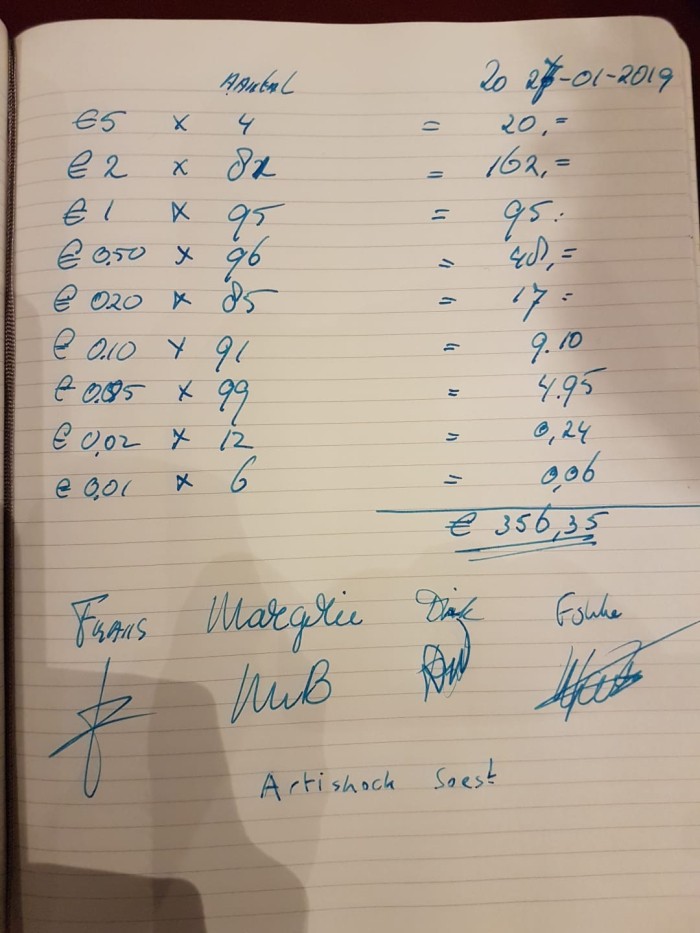 Aantal zo 27-01-2019
€5 x 4 = 20,=
€ 2 x 81 = 162,=
€ 1 x 95 = 95.
€ 0,50 x 96 = 48,=
€ 020 x 85 = 17 =
€ 0.10 x 91 = 9.10
€ 0.05 x 99 = 4.95
€ 0,02 x 12 = 0,24
€ 0,01 x 6 = 0,06
€ 356,35
Frans Margriet Dink Fokke
MvB
Artishock Soest